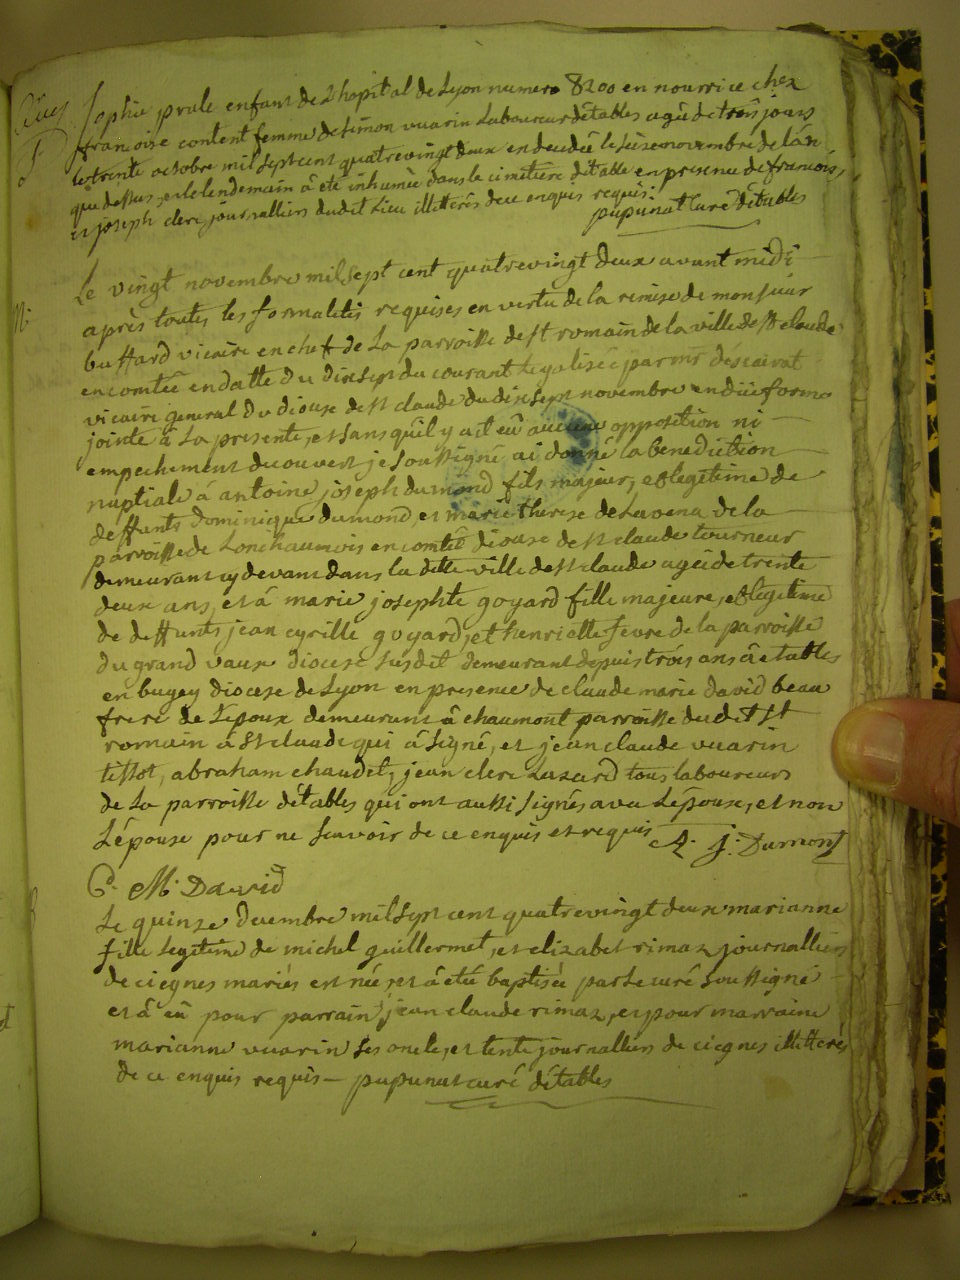 Sophie prale enfant de L'hopital de Lyon numero 8200 en nourrice chez
francoise content femme de Simon vuarin Laboureur détables agée de trois jours
le trente octobre mil Sept cent quatrevingt deux en decedée le seize novembre de l'an
que dessus, et le lendemain â eté inhumée dans le cimetiere détable en presence de francois,
et joseph clerc journalliers dudit Lieu illitterés de ce enquis requis:
pupunat curé détables
Le vingt novembre mil Sept cent quatrevingt deux avant midi
après toutes les formalités requises en vertu de la remise de monsieur
buffard vicaire en chef de La parroisse de St romain de la ville de St claude
en comtée en datte du dix sept du courant Legalisée par mr
vicaire general du diocese de St claude du dix sept novembre en düe forme
jointe â La presente, et sans qu'il y ait eû aucune opposition ni
empechement decouvert je soussigné ai donné la benediction
nuptiale â antoine joseph dumond fils majeur, et legitime de
deffunts dominique dumond, et marie therese de Lavena de la
parroisse de Lonchaumois en comté diocese de St claude tourneur
demeurant cy devant dans la ditte ville de St claude agé de trente
deux ans, et â marie josephte goyard fille majeure, et legitime
de deffunts jean cyrille goyard, et henriette fevre de la parroisse
du grand vaux diocese susdit demeurant depuis trois ans â etables
en bugey diocese de Lyon en presence de claude marie david beau
frere de L'epoux demeurant â chaumont parroisse dudit St
romain â St claude qui â signé, et jean claude vuarin
tissot, abraham chaudet, jean clerc Lazard tous laboureurs
de La parroisse détables qui ont aussi signés avec L'époux, et non
L'épouse pour ne sçavoir de ce enquis et requis A. J. Dumont
C. M. David
Le quinze decembre mil sept cent quatrevingt deux marianne
fille legitime de michel guillermet, et elizabet rimaz journalliers
de ciegnes mariés est née, et â eté baptisée par Le curé soussigné
et â eû pour parrain jean claude rimaz, et pour marraine
marianne vuarin ses oncle, et tente journalliers de ciegnes illitterés
de ce enquis requis – pupunat curé détables